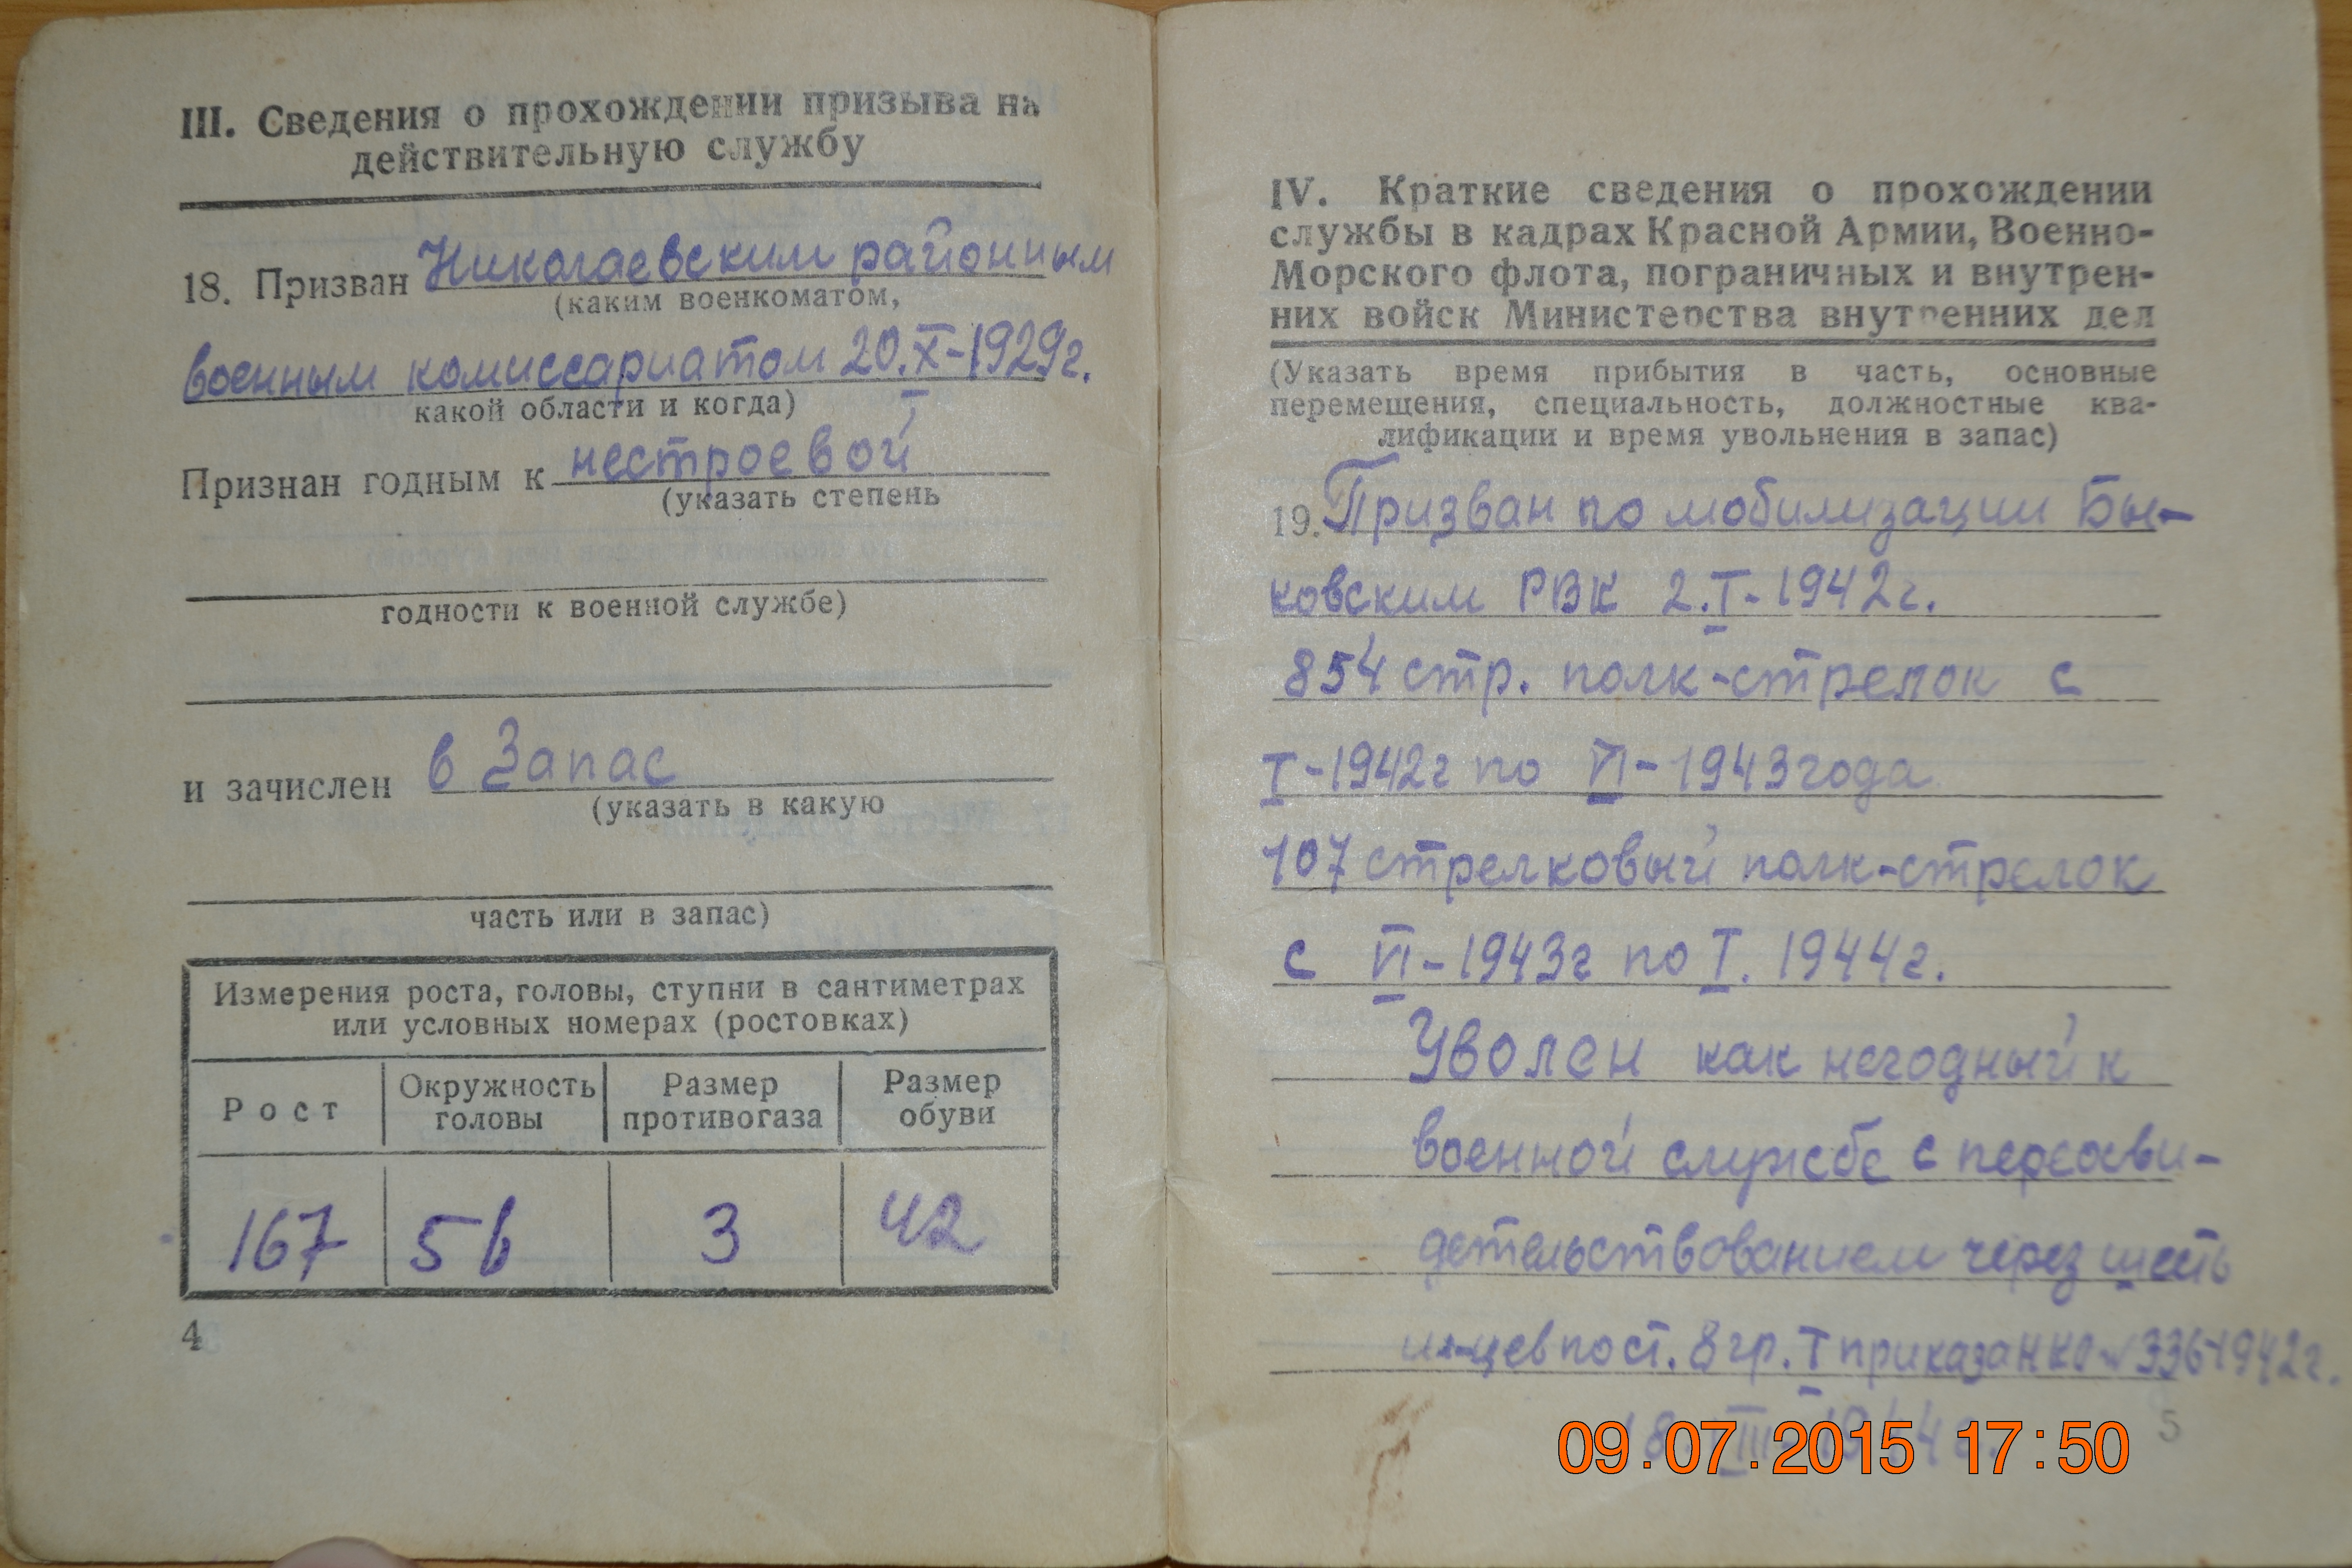 III. Сведения о прохождении призыва на
действительную службу
18. Призван Николаевским районным
(каким военкоматом,
военным комиссариатом 20.X-1929г.
какой области и когда)
I
Признан годным к нестроевой
(указать степень
годности к военной службе)
и зачислен в Запас
(указать в какую
часть или в запас)
Измерения роста, головы, ступни в сантиметрах
или условных номерах (ростовках)
Рост Окружность головы Размер противогаза Размер обуви
167 56 3 42
4
IV. Краткие сведения о прохождении
службы в кадрах Красной Армии, Военно-
Морского флота, пограничных и внутрен-
них войск Министерства внутренних дел
(Указать время прибытия в часть, основные
перемещения, специальность, должностные ква-
лификации и время увольнения в запас)
19. Призван по мобилизации Бы-
ковским РВК 2.I-1942г.
854 стр. полк-стрелок с
I-1942г по VI-1943года
107 стрелковый полк-стрелок
с VI-1943г по I. 1944г.
Уволен как негодный к
военной службе с переосви-
детельствованием через шесть
м-цев по ст. 8 гр. I приказа НКО № 336-1942г.
18 III 1944г.
5
09.07.2015 17:50